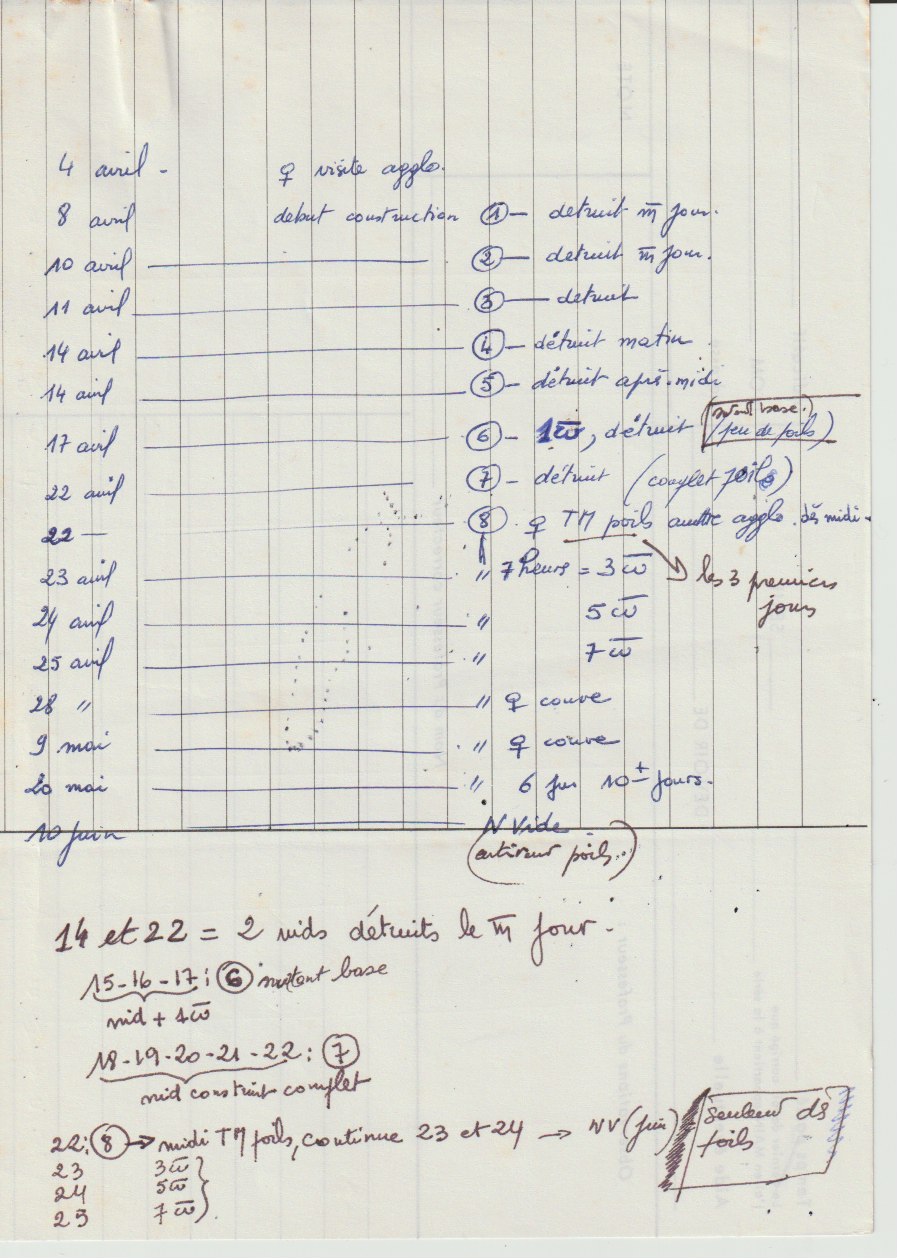 4 avril - ♀ visite agglo.
8 avril debut construction ① - detruit m̄ jour.
10 avril ② - detruit m̄ jour.
11 avril ③ — detruit
14 avril ④ - détruit matin
14 avril ⑤ - détruit après-midi
17 avril ⑥ - 1ω̄, détruit (surtout base. peu de poils)
22 avril ⑦ - détruit (complet poils)
22 — ⑧ ♀ TM poils autre agglo. dès midi -
23 avril " 7 heures = 3ω̄ les 3 premiers jours
24 avril " 5ω̄
25 avril " 7ω̄
28 " " ♀ couve
9 mai " ♀ couve
20 mai " 6 jus 10 ± jours.
10 juin N Vide
( poils..)
14 et 22 = 2 nids détruits le m̄ jour.
15-16-17: ⑥ surtout base
nid + 1ω̄
18-19-20-21-22: ⑦
nid construit complet
22: ⑧ → midi TM poils, continue 23 et 24 → NV (juin) seulement ds
poils
23 3ω̄
24 5ω̄
25 7ω̄